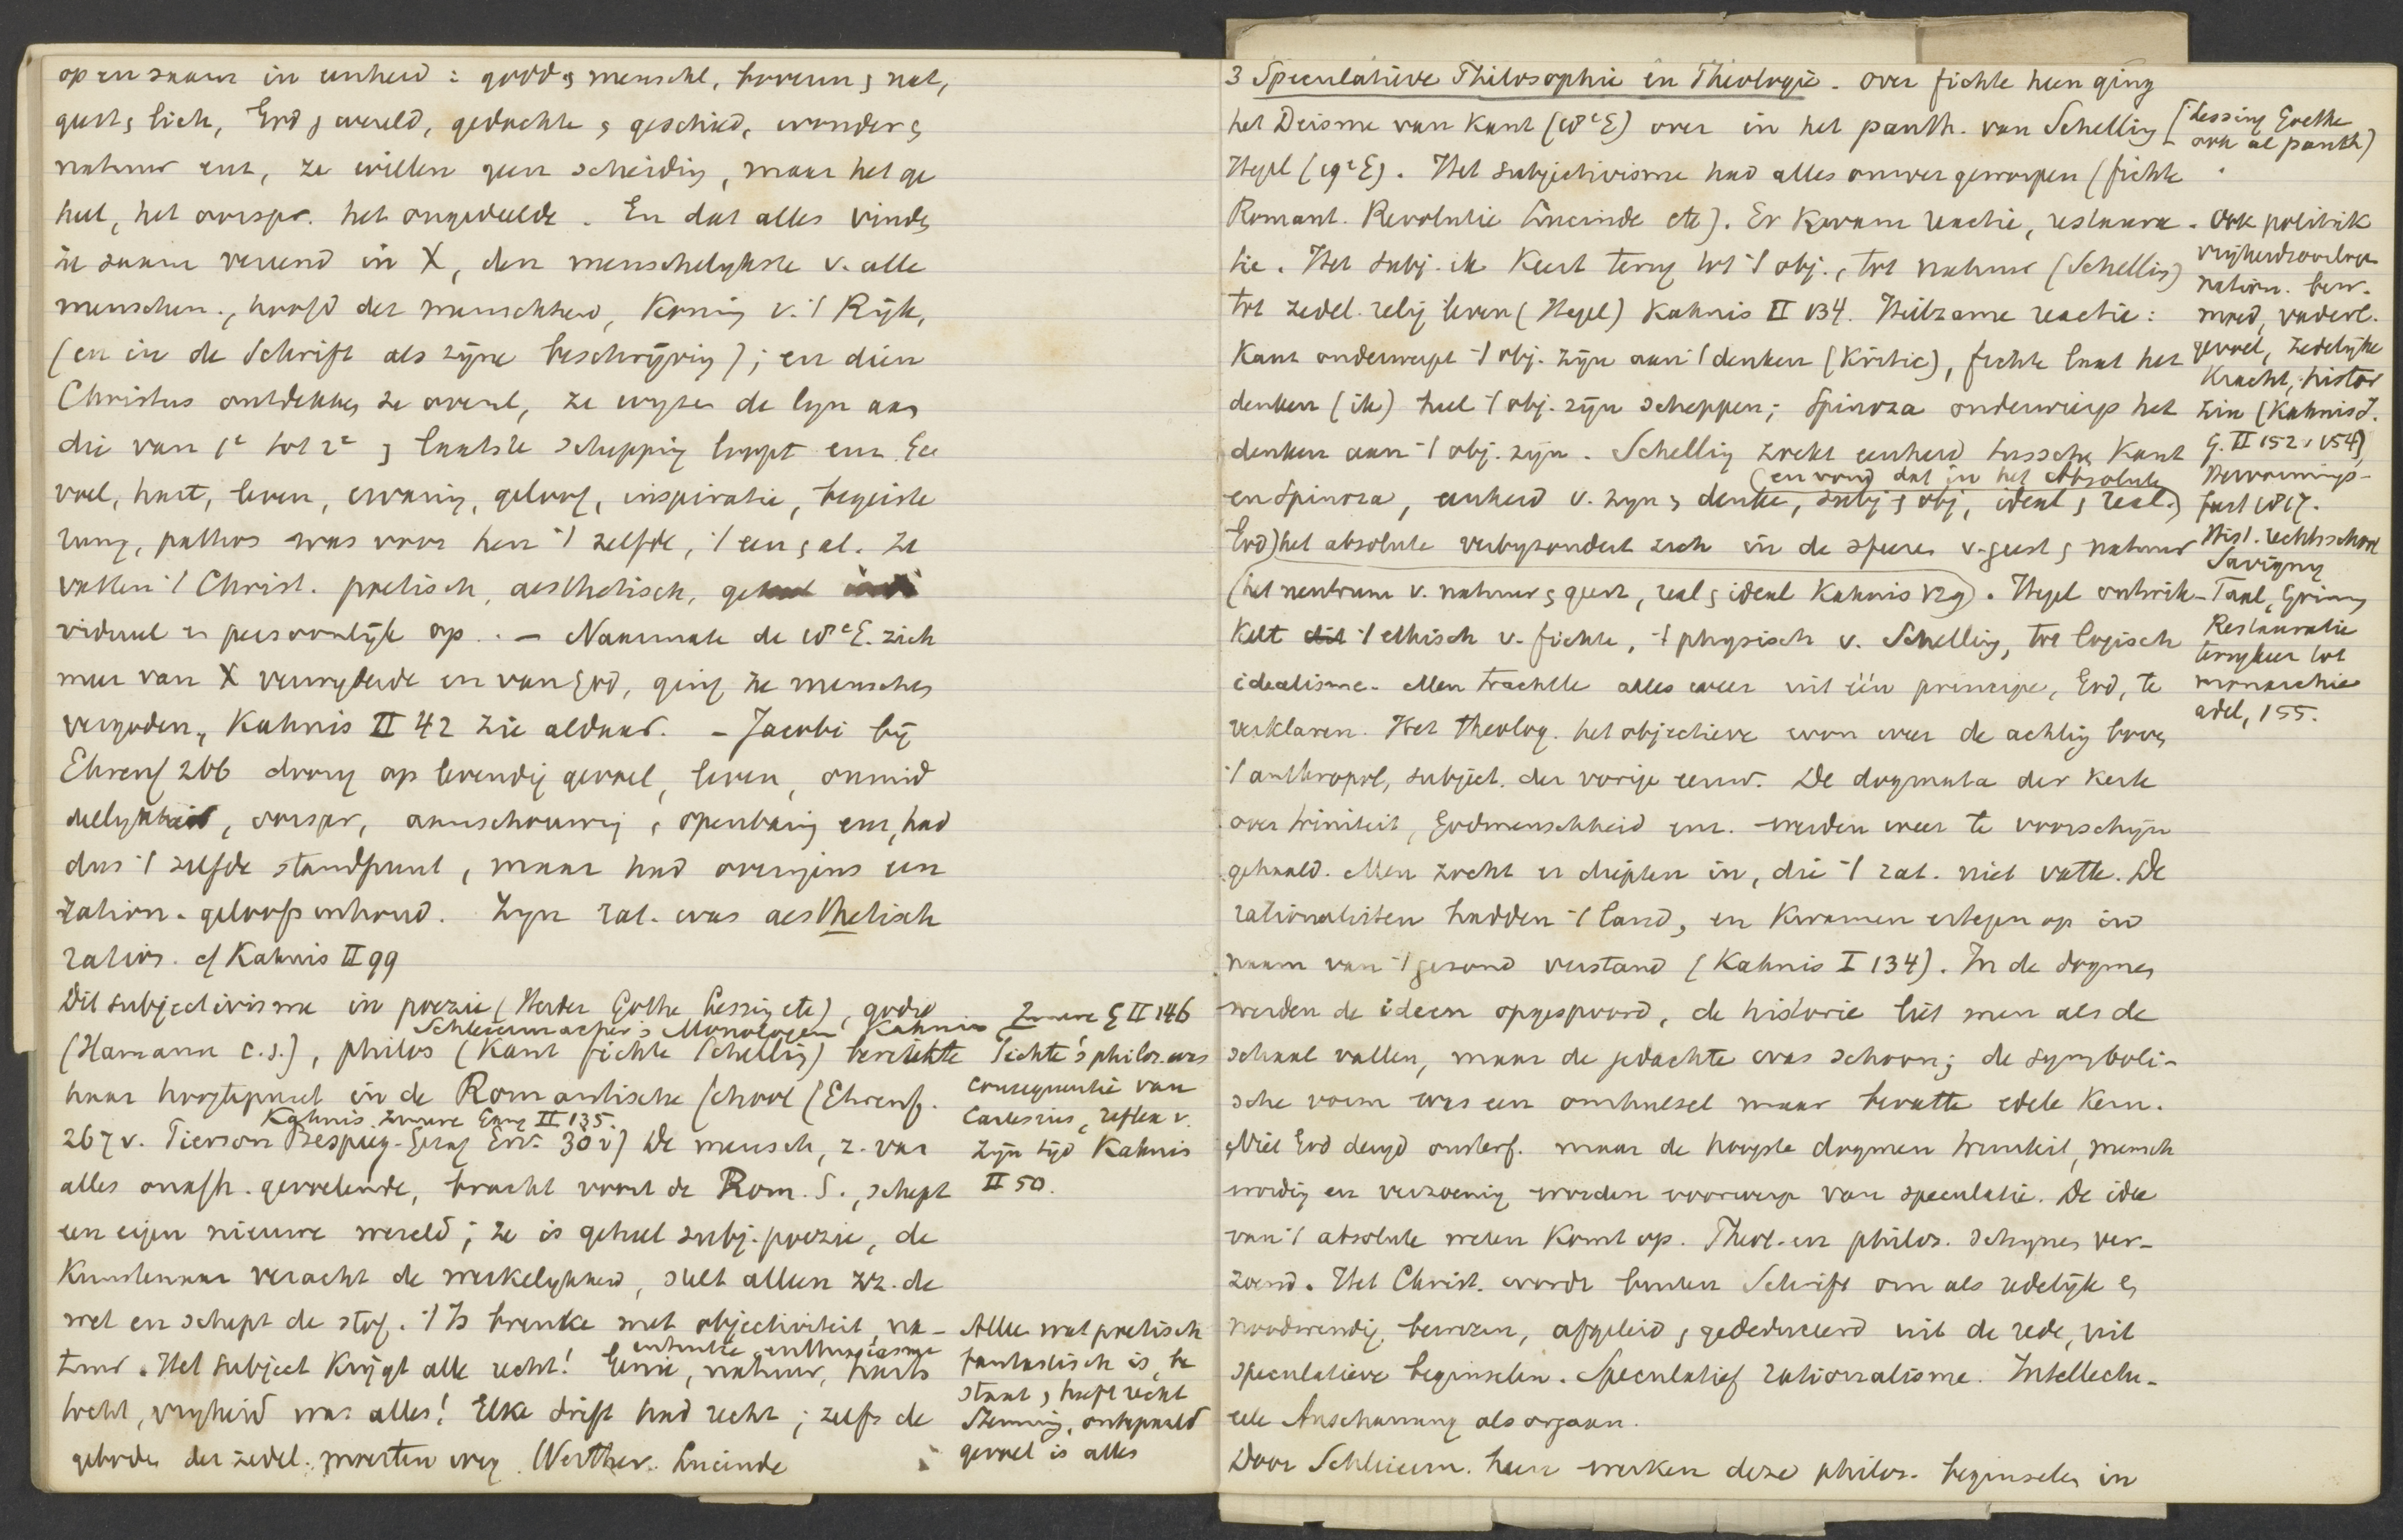 op en saam in eenheid : godd & menschl, bovenn & nat,
geest & lich, God & wereld, gedachte & geschied, wonder &
natuur enz, ze willen geen scheiding, maar het ge
heel, het oorspr. het ongedeelde. En dat alles vinden
ze saam vereend in X, den menschelykste v. alle
menschen, hoofd der menschheid, Koning v. 't Rijk,
(en in de Schrift als zijne beschrijving); en dien
Christus ontdekken ze overal, ze wyzen de lyn aan
die van 1e tot 2e & laatste schepping loopt enz. Ge
voel, hart, leven, ervaring, geloof, inspiratie, begeiste
rung, pathos was voor hen 't zelfde, 't een & al. Ze
vatten 't Christ. poetisch, aesthetisch, geheel indi
vidueel en persoonlijk op. — Naarmate de 18e E. zich
meer van X verwyderde en van God, ging ze menschen
vergoden, Kahnis II 42 zie aldaar. — Jacobi bij
Ehrenf 266 drong op levendig gevoel, leven, onmid
dellykheid, oorspr, aanschouwing, openbaring enz, had
dus 't zelfde standpunt, maar had overigens een
ration. geloofsinhoud. Zyn rat. was aesthetisch
ration. cf Kahnis II 99
Dit subjectivisme in poezie (Herder Göthe Lessing etc), godsd
Schleiermacher's Monologen Kahnis Innere G II 146
(Hamann c.s.), philos (Kant Fichte Schelling) bereikte
haar hoogtepunt in de Romantische School (Ehrenf.
Kahnis Innere Gang II 135.
267 v. Pierson Bespieg. Gezag Erv. 30 v) De mensch, z. van
alles onafh. gevoelende, bracht voort de Rom. S., schept
een eigen nieuwe wereld; ze is geheel subj. poezie, de
Kunstenaar veracht de werkelykheid, stelt alleen zz. de
wet en schept de stof. 't Is breuke met objectiviteit, na-
tuur. Het subject krygt alle recht! Genie, natuur, harts
intuitie, enthusiasme
tocht, vryheid was alles! Elke drift had recht; zelfs de
geboden der zedel. moesten weg. Werther. Lucinde
Fichte's philos. was
consequentie van
Cartesius, reflex v.
zijn tijd Kahnis
II 50.
Alle wat poetisch
fantastisch is, be
staat & heeft recht
Stemming, onbepaald
gevoel is alles
3 Speculatieve Philosophie en Theologie. Over Fichte heen ging
het Deisme van Kant (18e E) over in het panth. van Schelling [Lessing Goethe
ook al panth)
Hegel (19e E). Het subjectivisme had alles omvergeworpen (Fichte
Romant. Revolutie Lucinde etc). Er kwam reactie, restaura-
tie. Het subj. ik keert terug tot 't obj., tot natuur (Schelling)
tot zedel. relig leven (Hegel) Kahnis II 134. Heilzame reactie:
Kant onderwerpt 't obj. zijn aan 't denken (Kritic), Fichte laat het
denken (ik) heel 't obj. zijn scheppen; Spinoza onderwierp het
denken aan 't obj. zijn. Schelling zoekt eenheid tusschen Kant
(en vond dat in het Absolute
en Spinoza, eenheid v. zyn & denken, subj & obj, ideal & real.)
God) het absolute verbyzondert zich in de sferen v. geest & natuur
(het neutrum v. natuur & geest, real & ideal Kahnis 129). Hegel ontwik-
kelt 't ethisch v. Fichte, 't physisch v. Schelling, tot logisch
idealisme. Men trachtte alles weer uit één principe, God, te
verklaren. Het theolog. het objectieve won weer de achting boven
't anthropol, subject. der vorige eeuw. De dogmata der Kerk
over triniteit, Godmenschheid enz. werden weer te voorschijn
gehaald. Men zocht er diepten in, die 't rat. niet vatte. De
rationalisten hadden 't land, en kwamen ertegen op in
naam van 't gezond verstand (Kahnis I 134). In de dogmen
werden de ideen opgespoord, de historie liet men als de
schaal vallen, maar de gedachte was schoon; de symboli-
sche vorm was een omhulsel maar bevatte edele kern.
Niet God deugd onsterf. maar de hoogste dogmen triniteit, mensch
wording en verzoening worden voorwerp van speculatie. De idee
van 't absolute weten komt op. Theol. en philos. schynen ver-
zoend. Het Christ. wordt buiten Schrift om als redelijk &
noodwendig bewezen, afgeleid & gededuceerd uit de rede, uit
speculatieve beginselen. Speculatief rationalisme. Intellectu-
eele Anschauung als orgaan.
Door Schleierm. heen werken deze philos. beginselen in
Ook politiek
vryheidsoorlogen
nation. bew.
moed, vaderl.
gevoel, zedelijke
kracht, histor
zin (Kahnis I.
G. II 152, 154)
Hervormings-
feest 1817.
Hist. rechtsschool
Savigny
Taal, Grimm
Restauratie
terugkeer tot
monarchie
adel, 155.